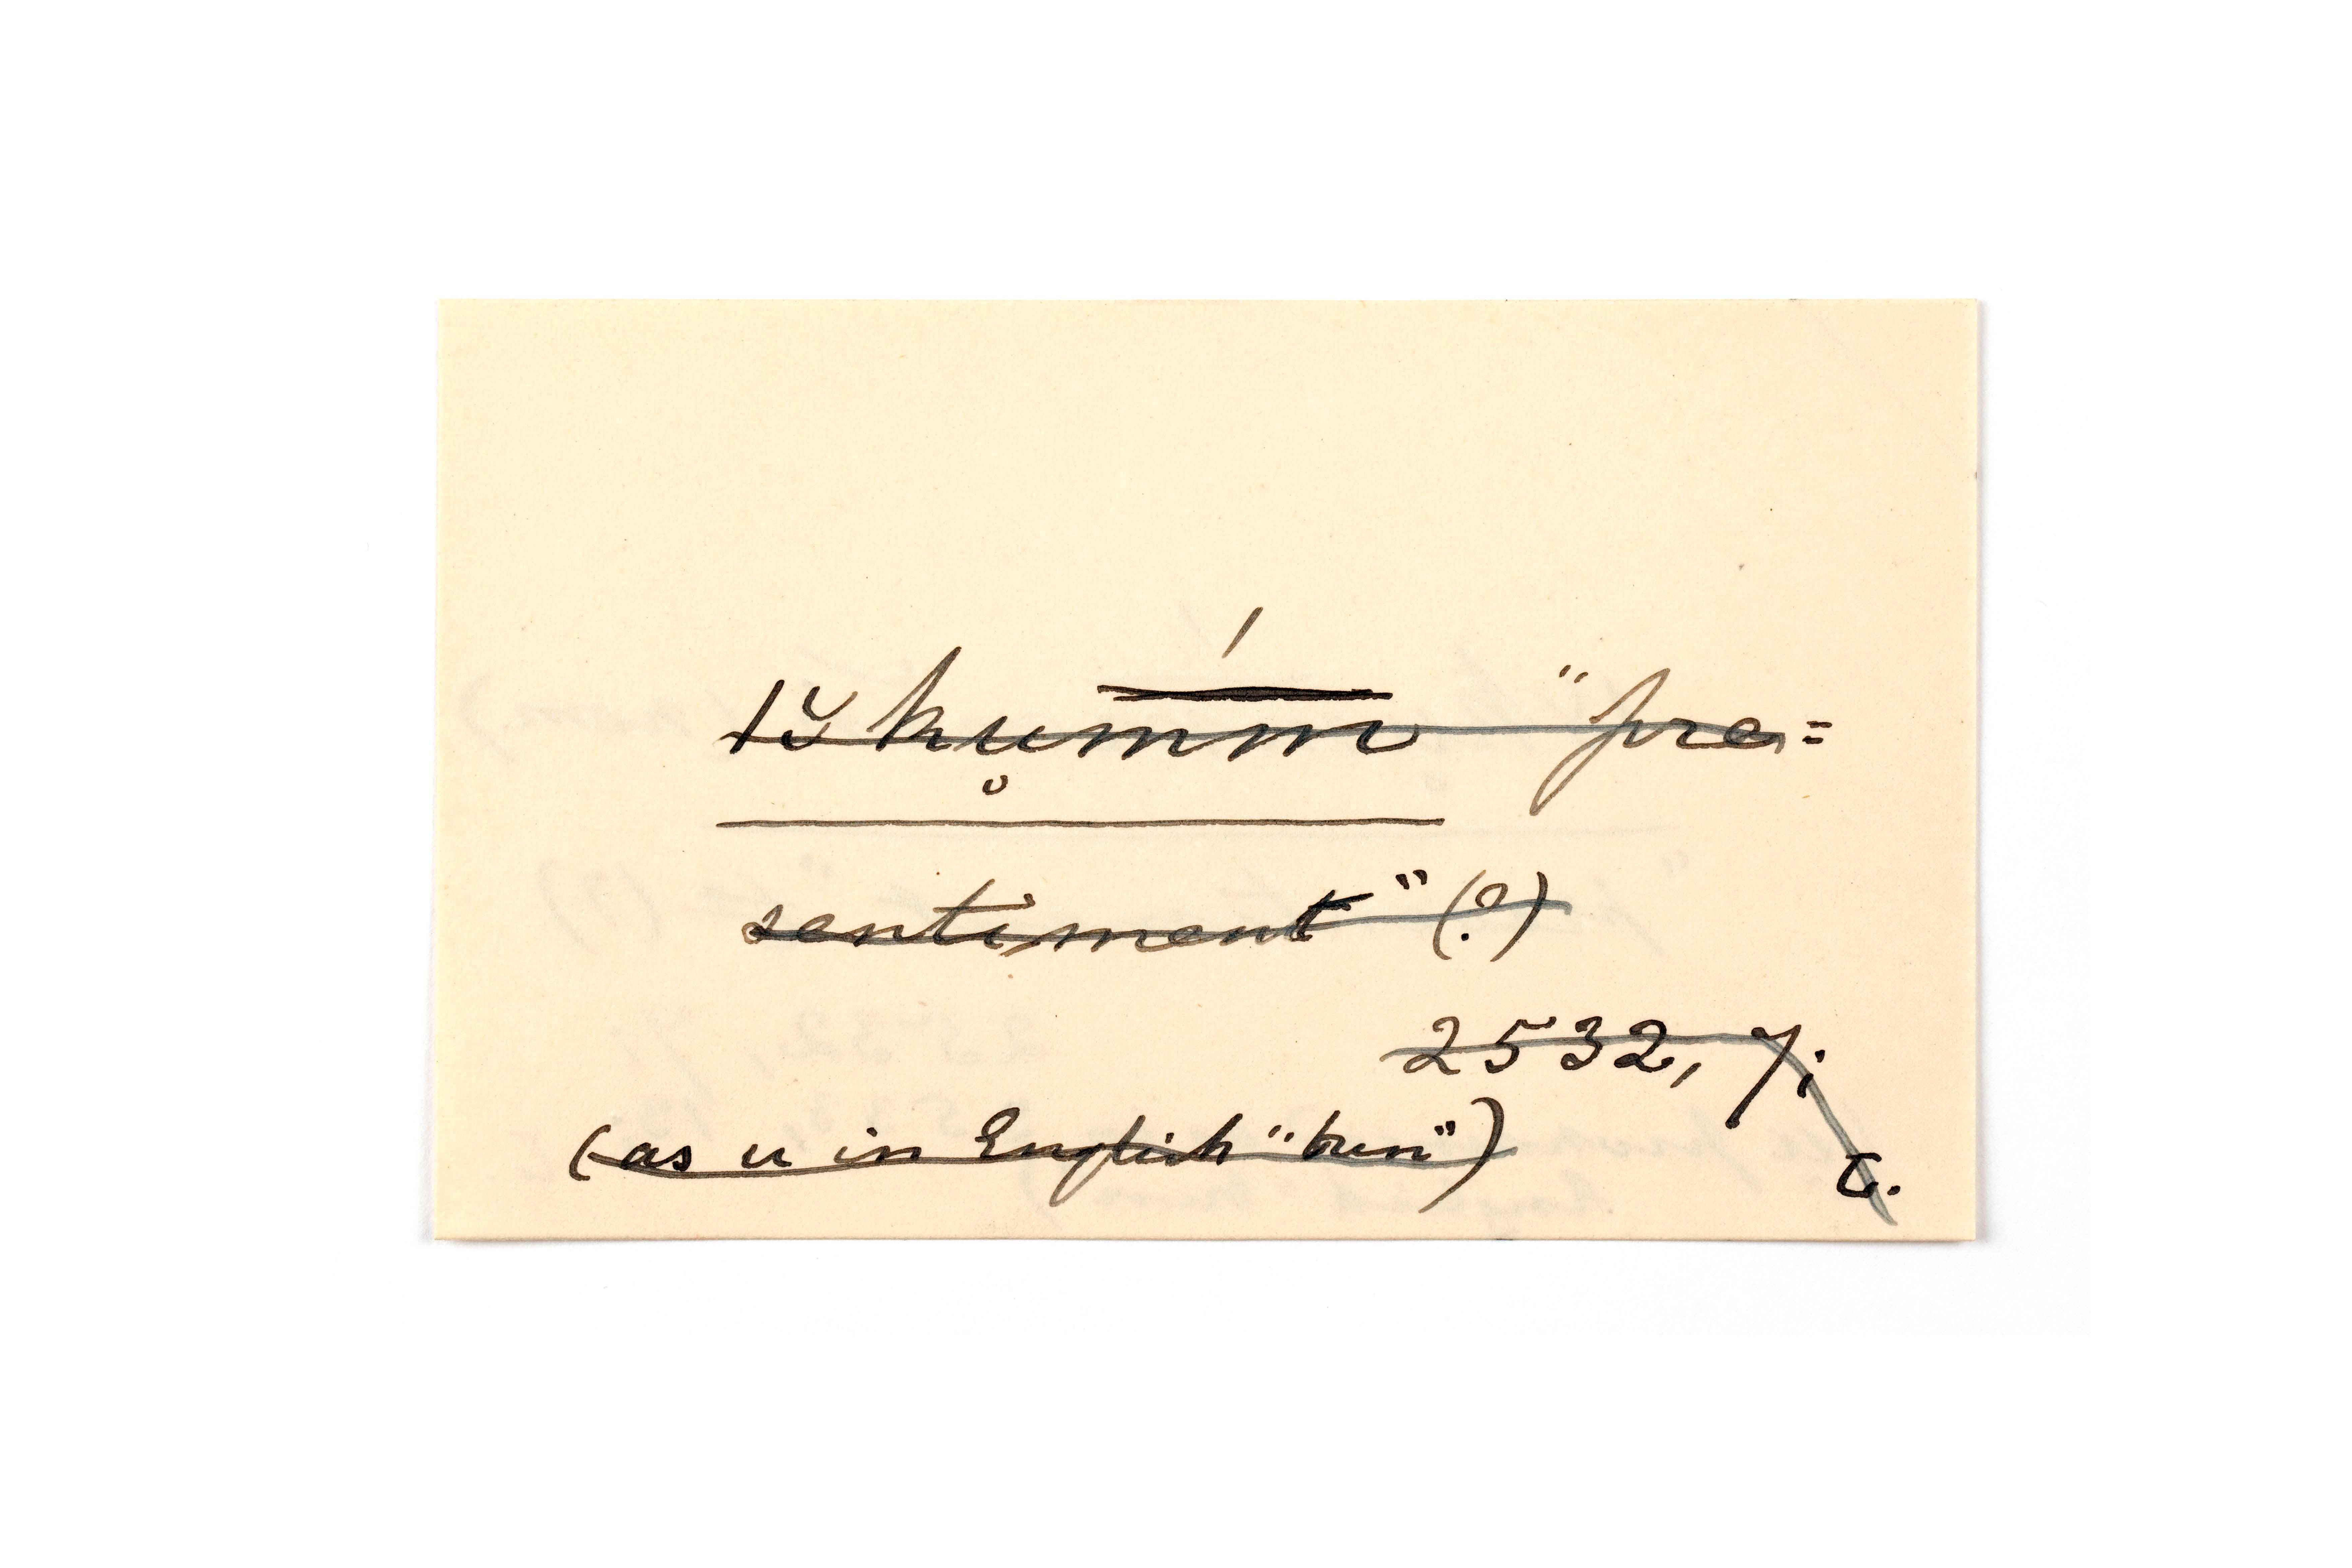 ı̆kŭmm̄́ "pre=
sentiment" (?)
2532, 7;
(as u in English "bun") τ.